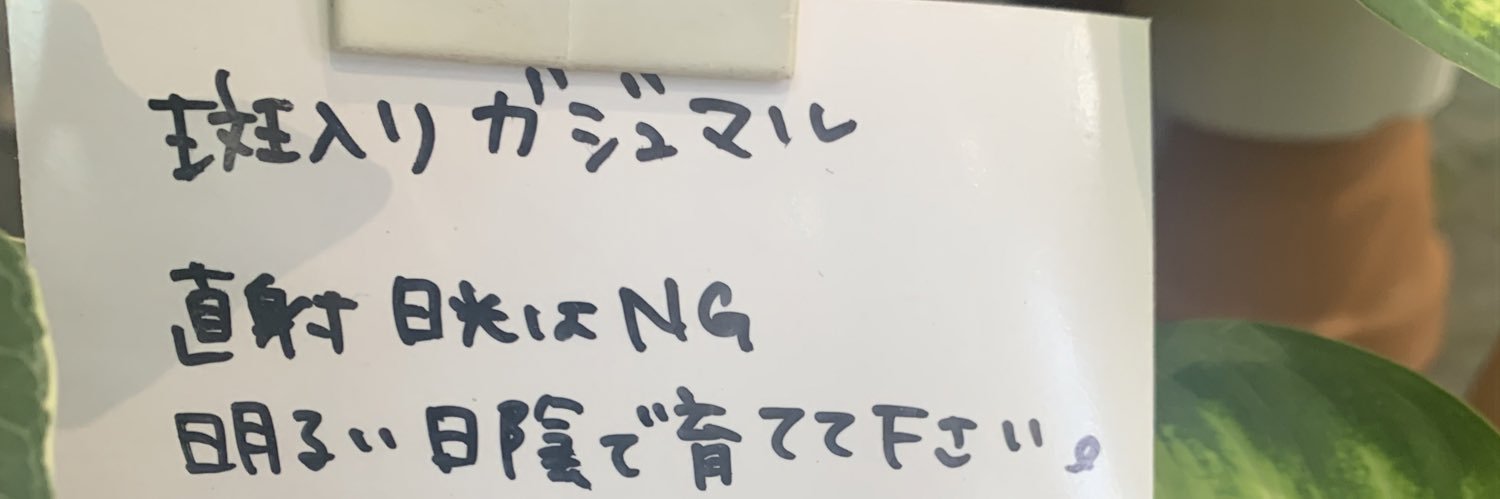 斑入りガジュマル
直射日光はNG
明るい日陰で育てて下さい。